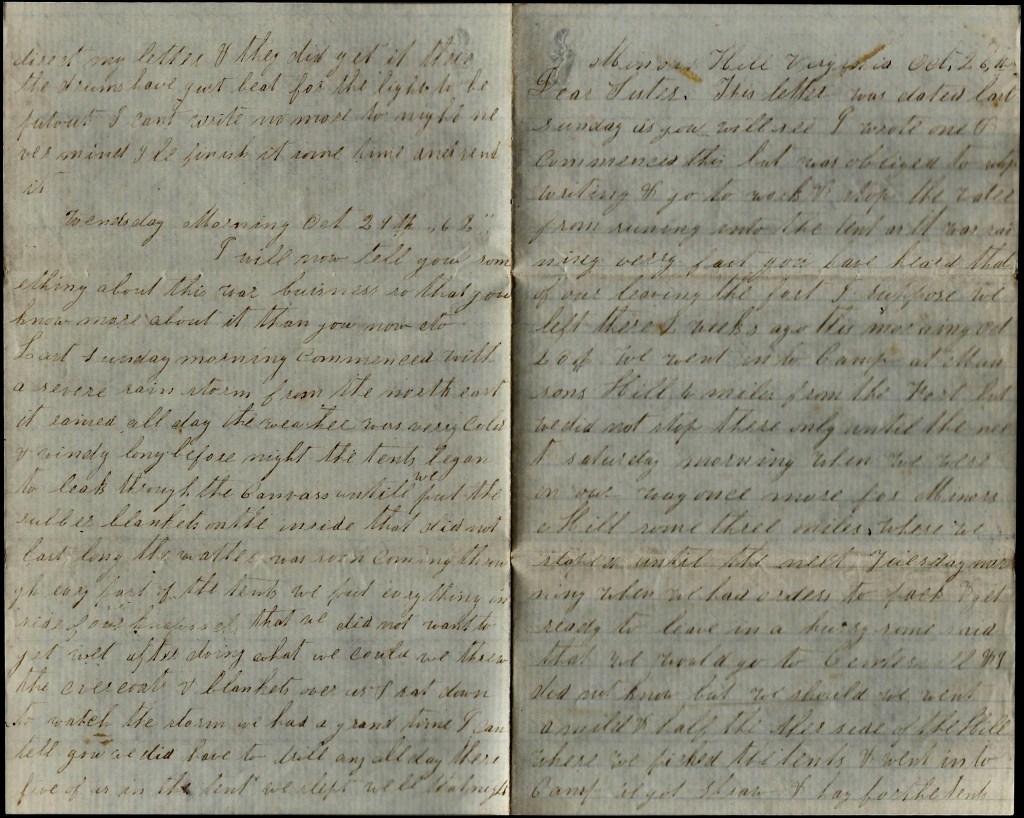 Minors Hill Virginia Oct, 26, 62
Dear Sister. This letter was dated last
sunday as you will see I wrote one &
commenced this but was obliged to stop
writing & go to work & stop the water
from runing into the tent as it was rai
ning verry fast you have heard that
of our leaving the fort I suppose we
left there 2 weeks ago this morning Oct
20th We went in to Camp at Mun
sons Hill miles from the Fort but
we did not stop there only until the nex
t saturday morning when we were
on our way once more for Minors
Hill some three miles where we
stoped until the next Tuesday mor
ning when we had orders to pack & get
ready to leave in a hurry some said
that we would go to Centerville & I
did not know but we should we went
a mild & half the other side of the Hill
where we piched the tents & went into
Camp we got straw & hay for the tents
direct my letter & they did get it there
the drums have just beat for the lights to be
putout I cant write no more to night ne
ver mind I le finish it some time and send
it
Wendsday Morning Oct 29th, 62"
I will now tell you som
ething about this war buisness so that you
know more about it than you now do
Last Sunday morning commenced with
a severe rain storm from the north east
it rained all day the weather was verry cold
& windy long before night the tents began
to leak through the canvass untill we put the
rubber blankets on the inside that did not
last long the watter was soon coming throu
gh evry part of the tents we put evrything in
side of our that we did not want to
get wet after doing what we could we threw
the overcoats & blankets over us & sat down
to watch the storm we had a grand time I can
tell you we did have to drill any all day there
five of us in the tent we slept well that night